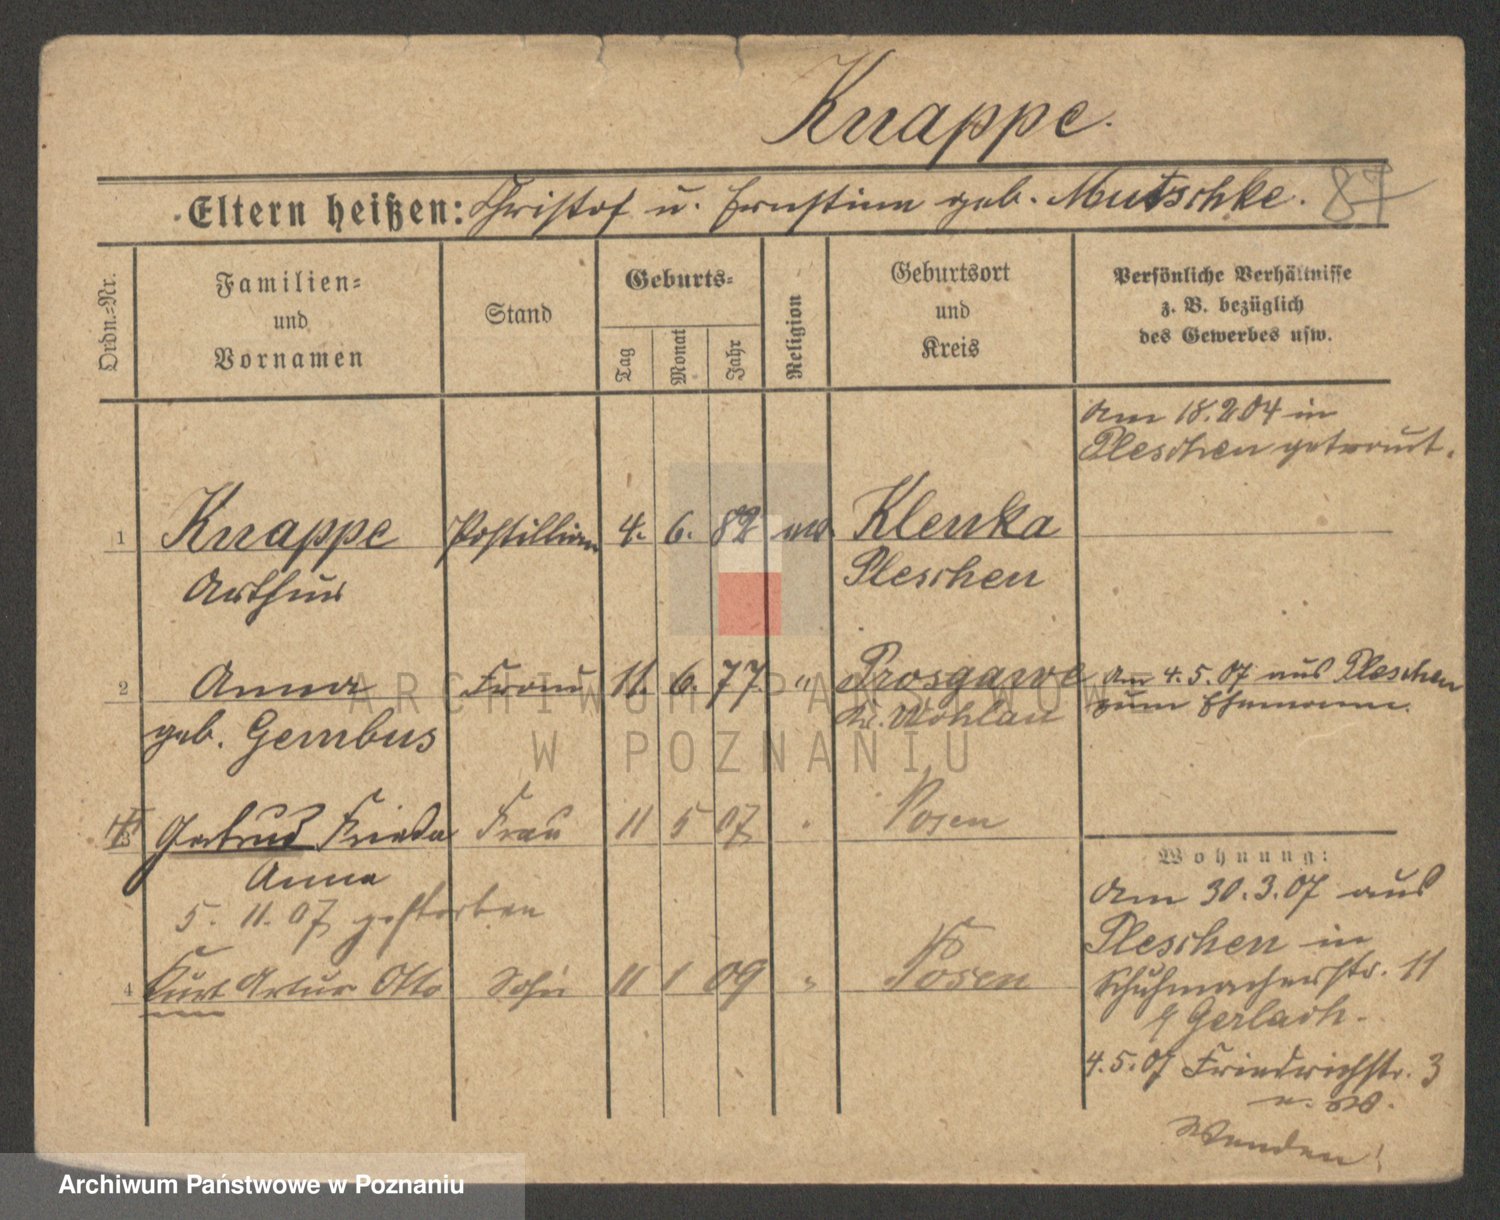 Knappe.
Eltern heißen: Christof u. Ernstine geb. Mutschke. 87
Ordn.-Nr.
Familien-
und
Vornamen
Stand
Geburts-
Tag
Monat
Jahr
Religion
Geburtsort
und
Kreis
Persönliche Verhältnisse
z. B. bezüglich
des Gewerbes usw.
Am 18.2.04 in
Pleschen getraut.
1 Knappe Postillion 4. 6. 82 ev. Klenka
Arthur Pleschen
2 Anna Frau 11. 6. 77. " Prosgawe Am 4.5.07 aus Pleschen
geb. Gembus Kr. Wohlau zum Ehemann.
3 Gertrud Frieda Frau 11 5 07 " Posen
Anna
5. 11. 07 gestorben
4 Kurt Artur Otto Sohn 11 1 09 " Posen
Wohnung:
Am 30.3.07 aus
Pleschen in
Schuhmacherstr. 11
Gerlach.
4.5.07 Friedrichstr. 3
Wenden!
ARCHIWUM PAŃSTWOWE
W POZNANIU
Archiwum Państwowe w Poznaniu